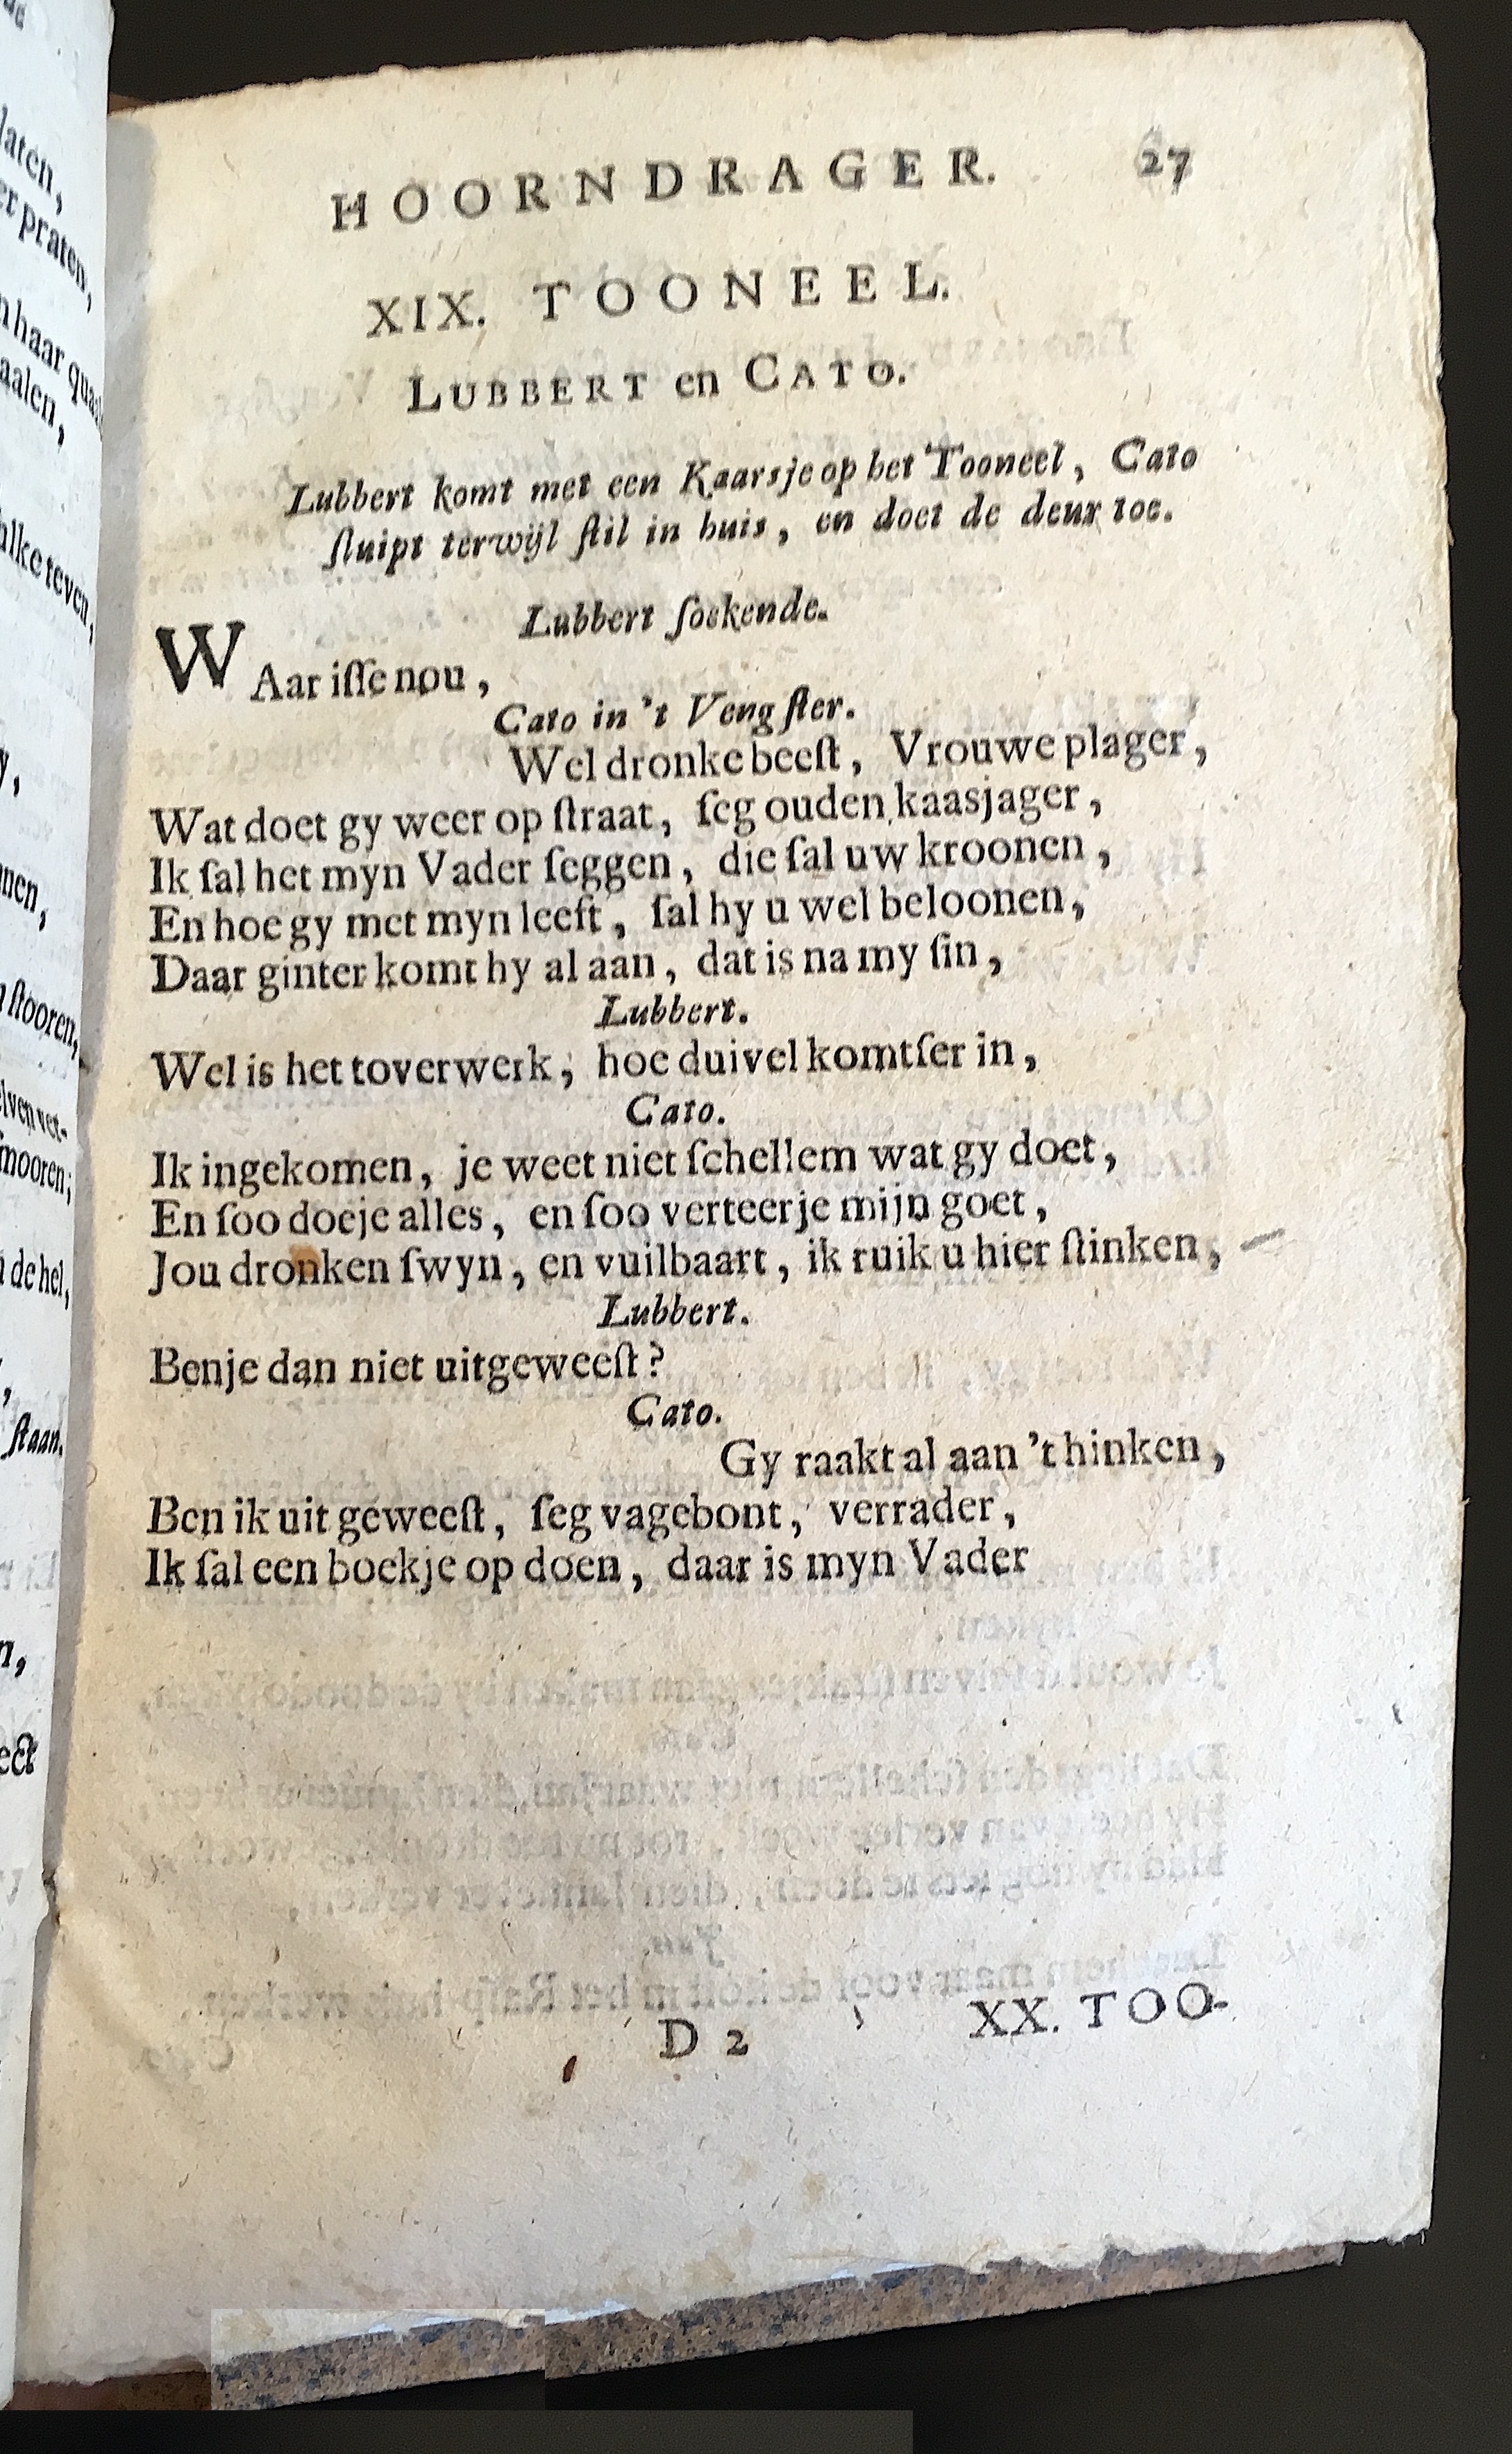 HOORNDRAGER. 27
XIX. TOONEEL.
LUBBERT en CATO.
Lubbert komt met een Kaarsje op het Tooneel, Cato
ſluipt terwijl ſtil in huis, en doet de deur toe.
Lubbert ſoekende.
WAar iſſe nou,
Cato in 't Vengſter.
Wel dronke beeſt, Vrouwe plager,
Wat doet gy weer op ſtraat, ſeg ouden kaasjager,
Ik ſal het myn Vader ſeggen, die ſal uw kroonen,
En hoe gy met myn leeft, ſal hy u wel beloonen,
Daar ginter komt hy al aan, dat is na my ſin,
Lubbert.
Wel is het toverwerk, hoe duivel komtſer in,
Cato.
Ik ingekomen, je weet niet ſchellem wat gy doet,
En ſoo doeje alles, en ſoo verteerje mijn goet,
Jou dronken ſwyn, en vuilbaart, ik ruik u hier ſtinken,
Lubbert.
Benje dan niet uitgeweeſt?
Cato.
Gy raakt al aan 't hinken,
Ben ik uit geweeſt, ſeg vagebont, verrader,
Ik ſal een boekje op doen, daar is myn Vader
D 2 XX. TOO-